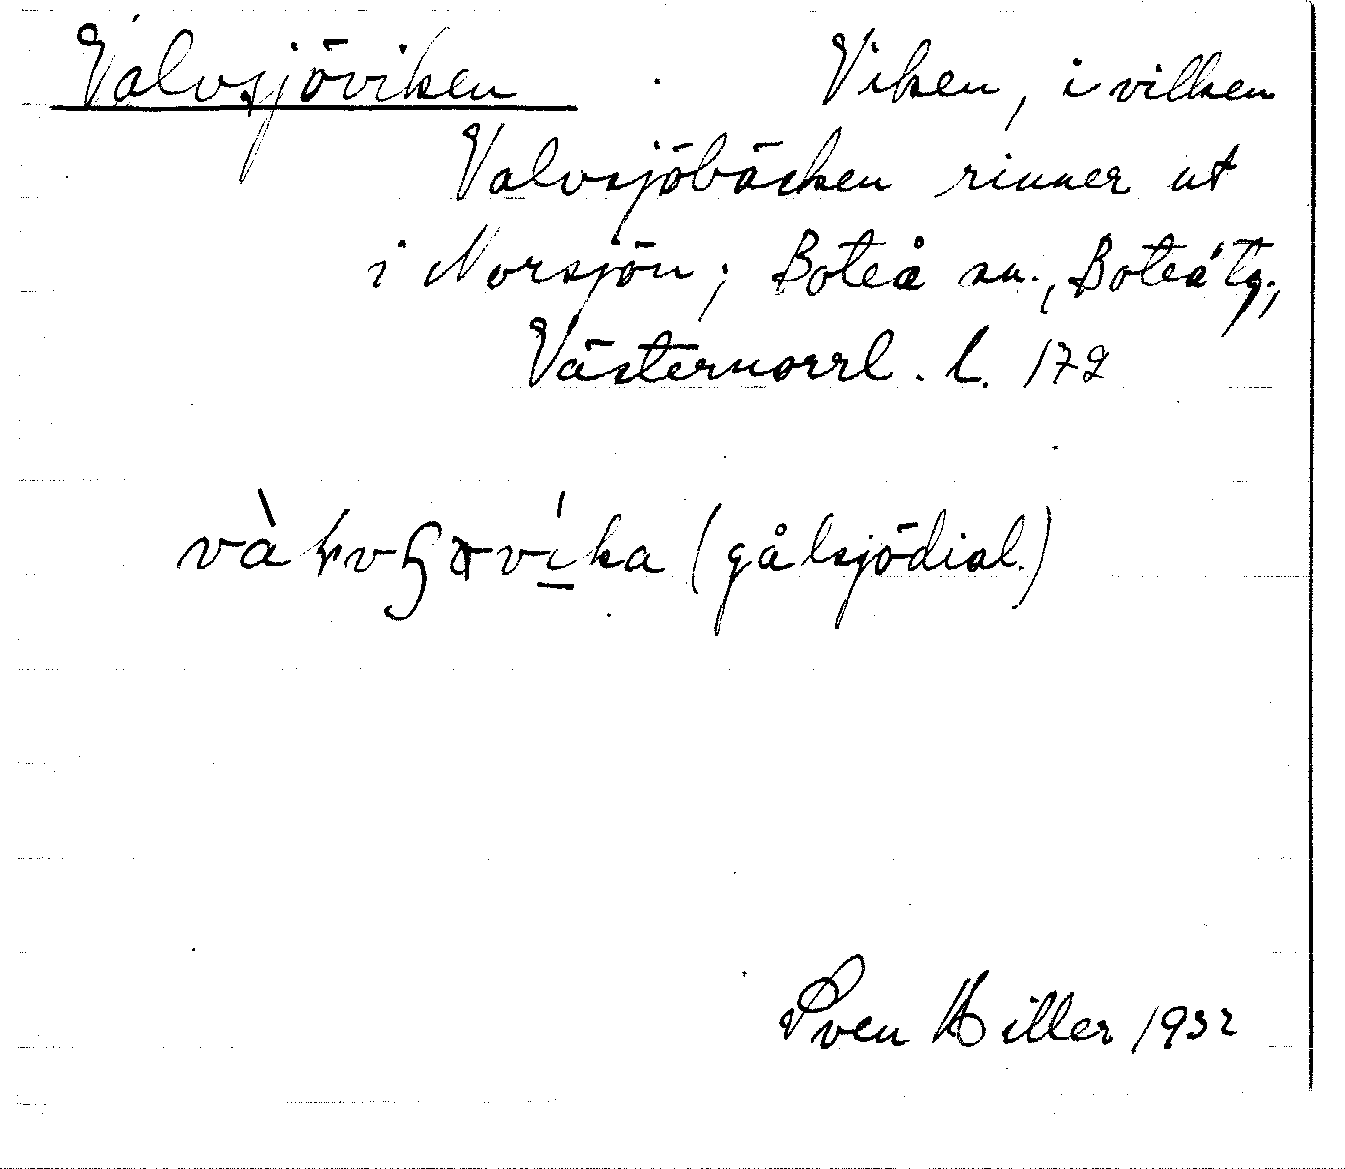 Valvsjöviken . Viken, i vilken
Valvsjöbäcken rinner ut
i Norsjön; Boteå sn., Boteå tg.,
Västernorrl. l. 172
(gålsjödial.)
Sven Hiller 1932